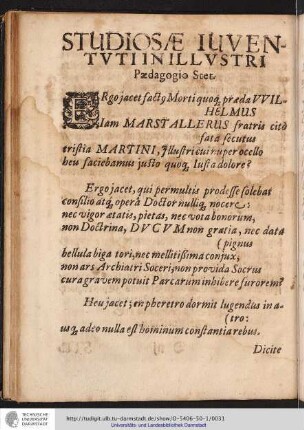 STUDIOSÆ IUVEN-
TVTI IN ILLVSTRI
Pædagogio Stet.
ERgo jacet factꝰ Morti quoq; præda VVIL-
HELMUS
Iam MARSTALLERUS fratris citò
fata secutus
tristia MARTINI, Illustri cui nuper ocello
heu faciebamus justo quoq; Iusta dolore?
Ergo jacet, qui permultis prodesse solebat
consilio atq; operâ Doctor nulliq; nocere:
nec vigor ætatis, pietas, nec vota bonorum,
non Doctrina, DVCVM non gratia, nec data
(pignus
bellula biga tori, nec mellitissima conjux,
non ars Archiatri Soceri, non provida Socrus
cura gravem potuit Parcarum inhibere furorem?
Heu jacet; en pheretro dormit lugendus in a-
(tro:
usq; adeo nulla est hominum constantia rebus.
Dicite
http://tudigit.ulb.tu-darmstadt.de/show/O-5406-50-1/0031
Universitäts- und Landesbibliothek Darmstadt